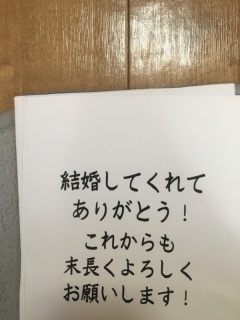 結婚してくれて
ありがとう！
これからも
末長くよろしく
お願いします！